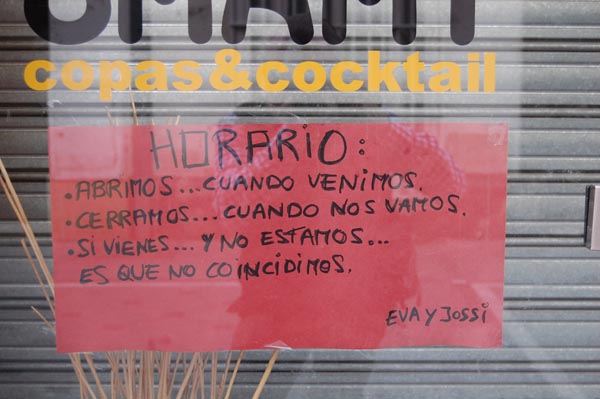 copas&cocktail
HORARIO:
•ABRIMOS...CUANDO VENIMOS.
•CERRAMOS...CUANDO NOS VAMOS.
•SI VIENES... Y NO ESTAMOS...
ES QUE NO COINCIDIMOS.
EVA Y JOSSI